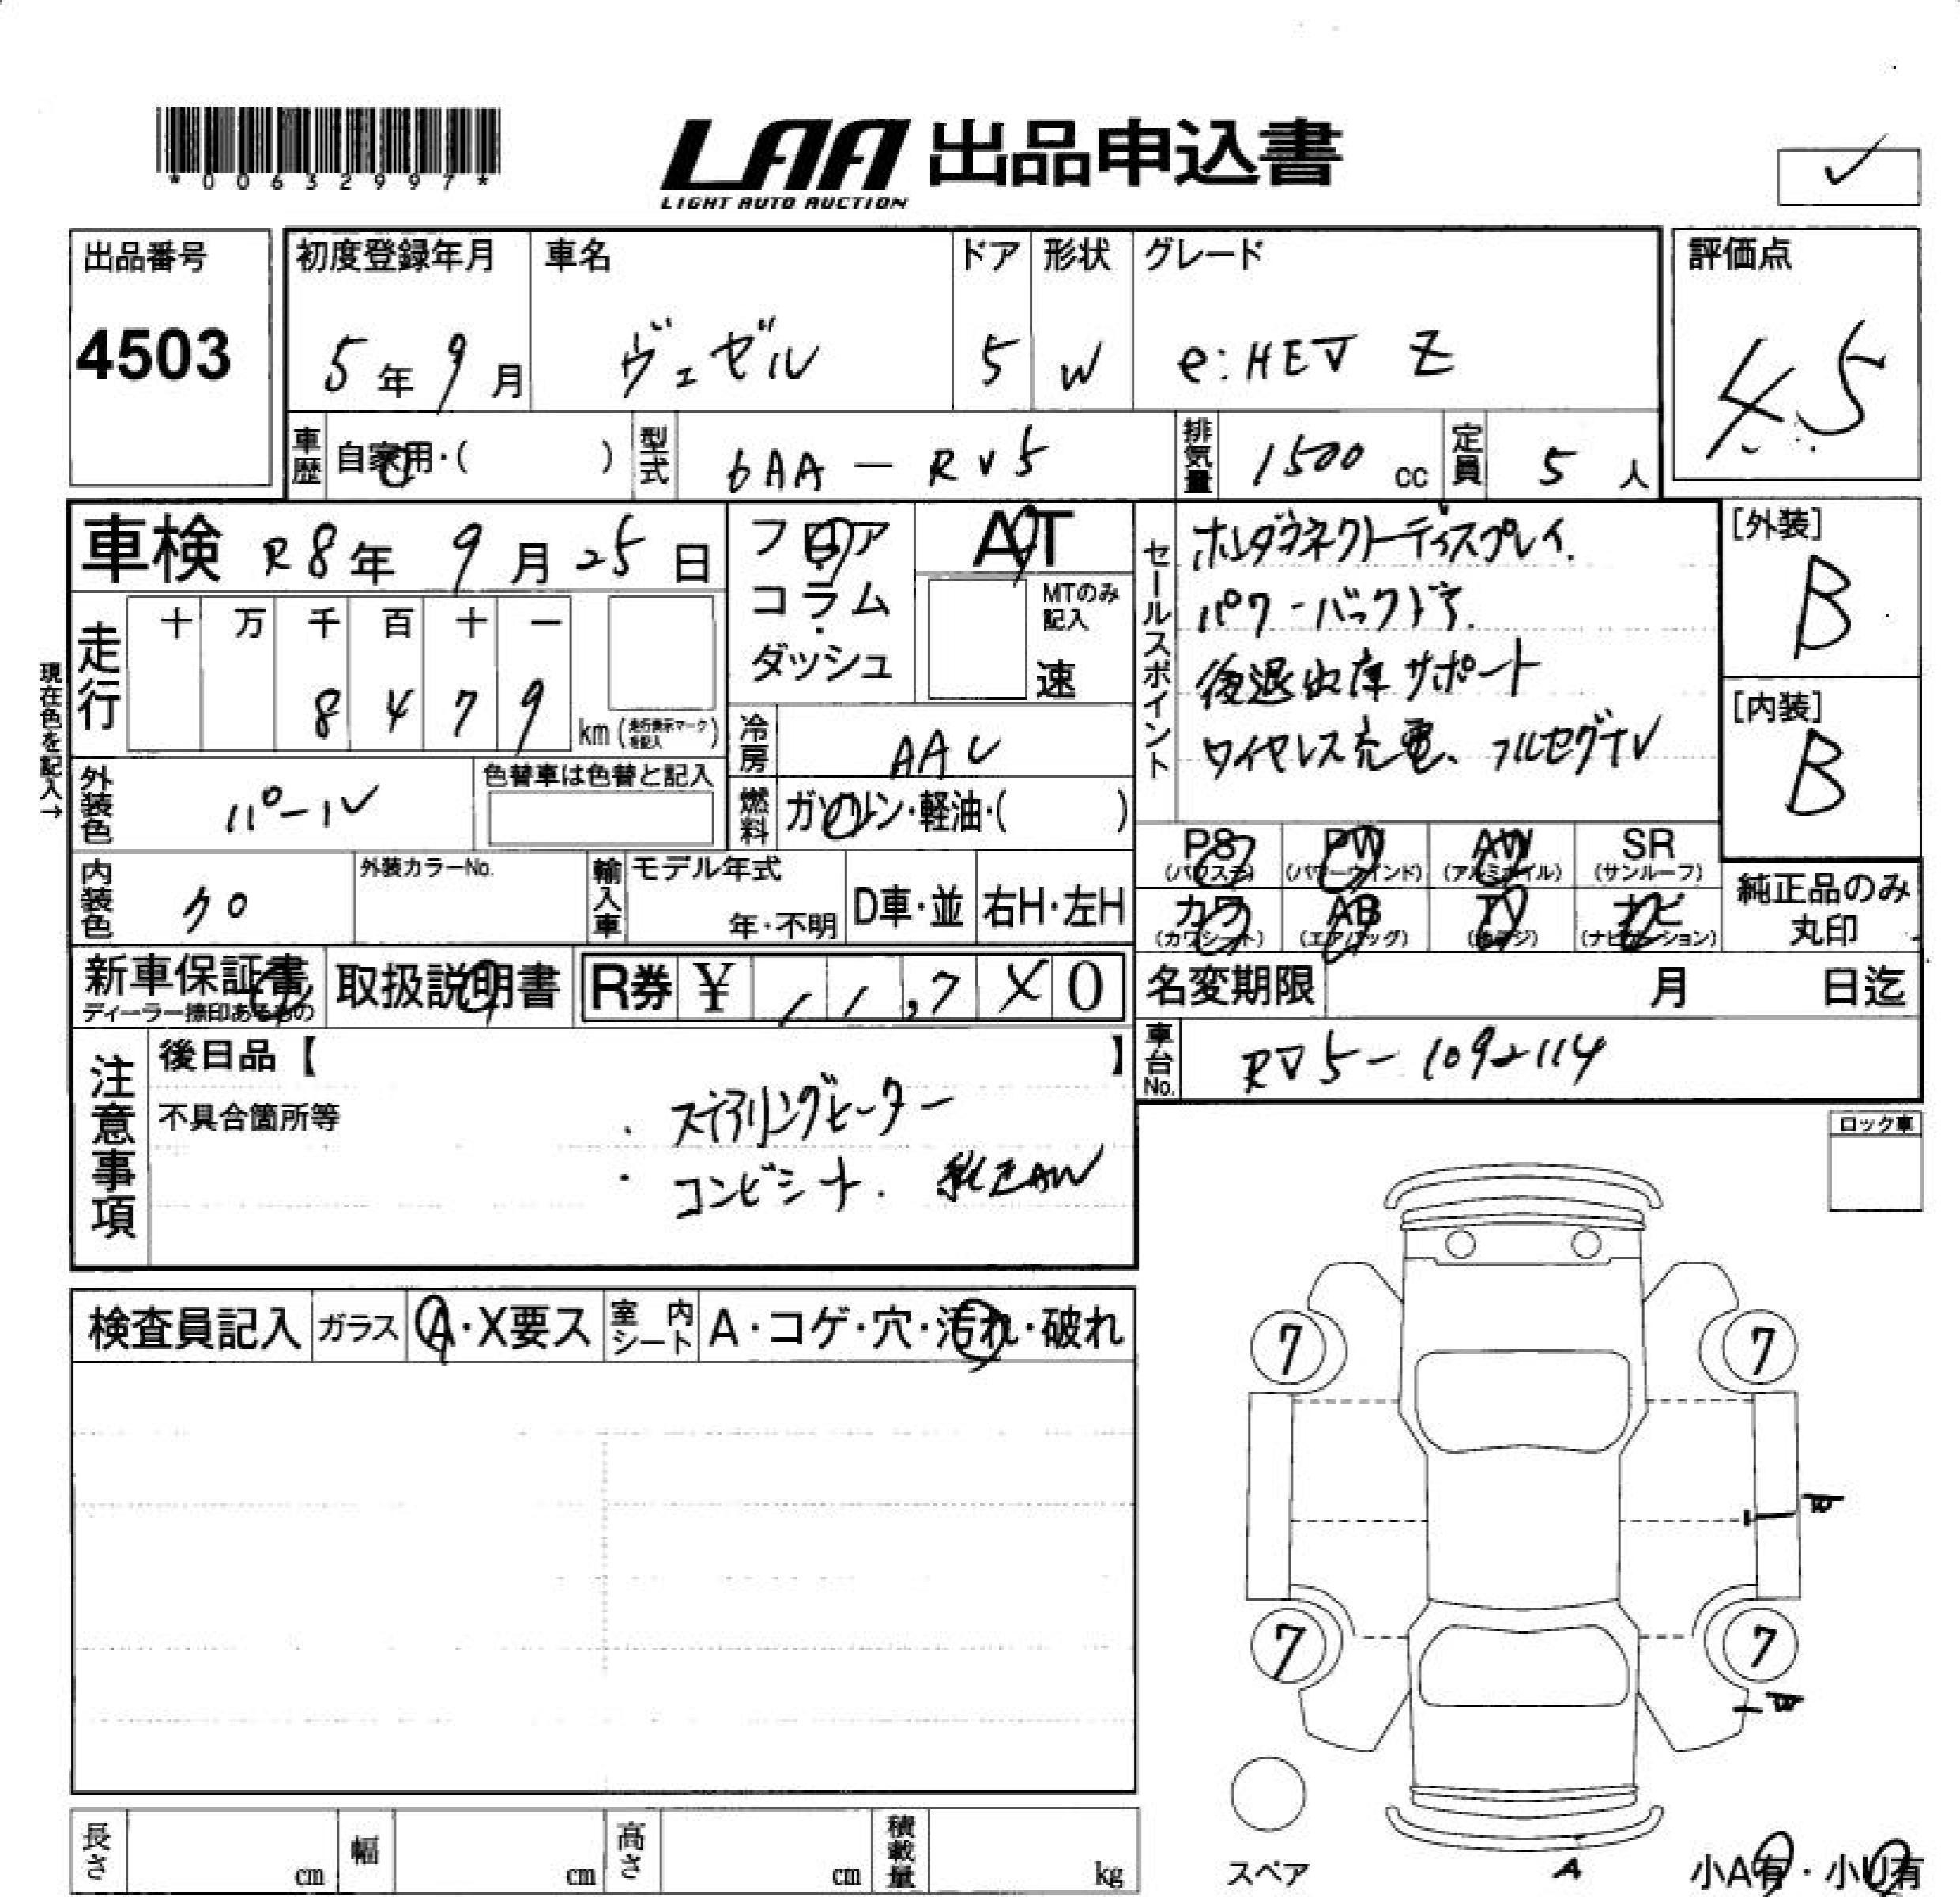 *00632997*
LAA 出品申込書
LIGHT AUTO AUCTION
✓
出品番号
4503
初度登録年月
5年9月
車名
ヴェゼル
ドア
5
形状
W
グレード
e:HEV Z
評価点
4.5
車歴
自家用・( )
型式
6AA-RV5
排気量
1500 cc
定員
5人
車検 R8年9月25日
フロア・コラム・ダッシュ
AT
MTのみ記入
速
セールスポイント
ホンダコネクトーディスプレイ.
パワーバックドア.
後退出庫サポート
ワイヤレス充電、フルセグTV
[外装]
B
[内装]
B
現在色を記入→
走行
十 万 千 百 十 一
8 4 7 9
km(走行表示マークを記入)
冷房
AAC
外装色
パール
色替車は色替と記入
燃料
ガソリン・軽油・( )
PS PW AW SR
(パワステ) (パワーウインド) (アルミホイル) (サンルーフ)
カワ AB TV ナビ
(カワシート) (エアバッグ) (ナビゲーション)
純正品のみ
丸印
内装色
クロ
外装カラーNo.
輸入車
モデル年式
年・不明
D車・並
右H・左H
新車保証書
ディーラー捺印あるもの
取扱説明書
R券 ¥
0
名変期限
月 日迄
車台No.
RV5-1092114
注意事項
後日品【 】
不具合箇所等
・ステアリングヒーター
・コンビシート. 純正AW
ロック車
検査員記入
ガラス
A・X要ス
室内シート
A・コゲ・穴・汚れ・破れ
7 7
W
7 7
W
スペア
A
小A有・小U有
長さ cm
幅 cm
高さ cm
積載量 kg